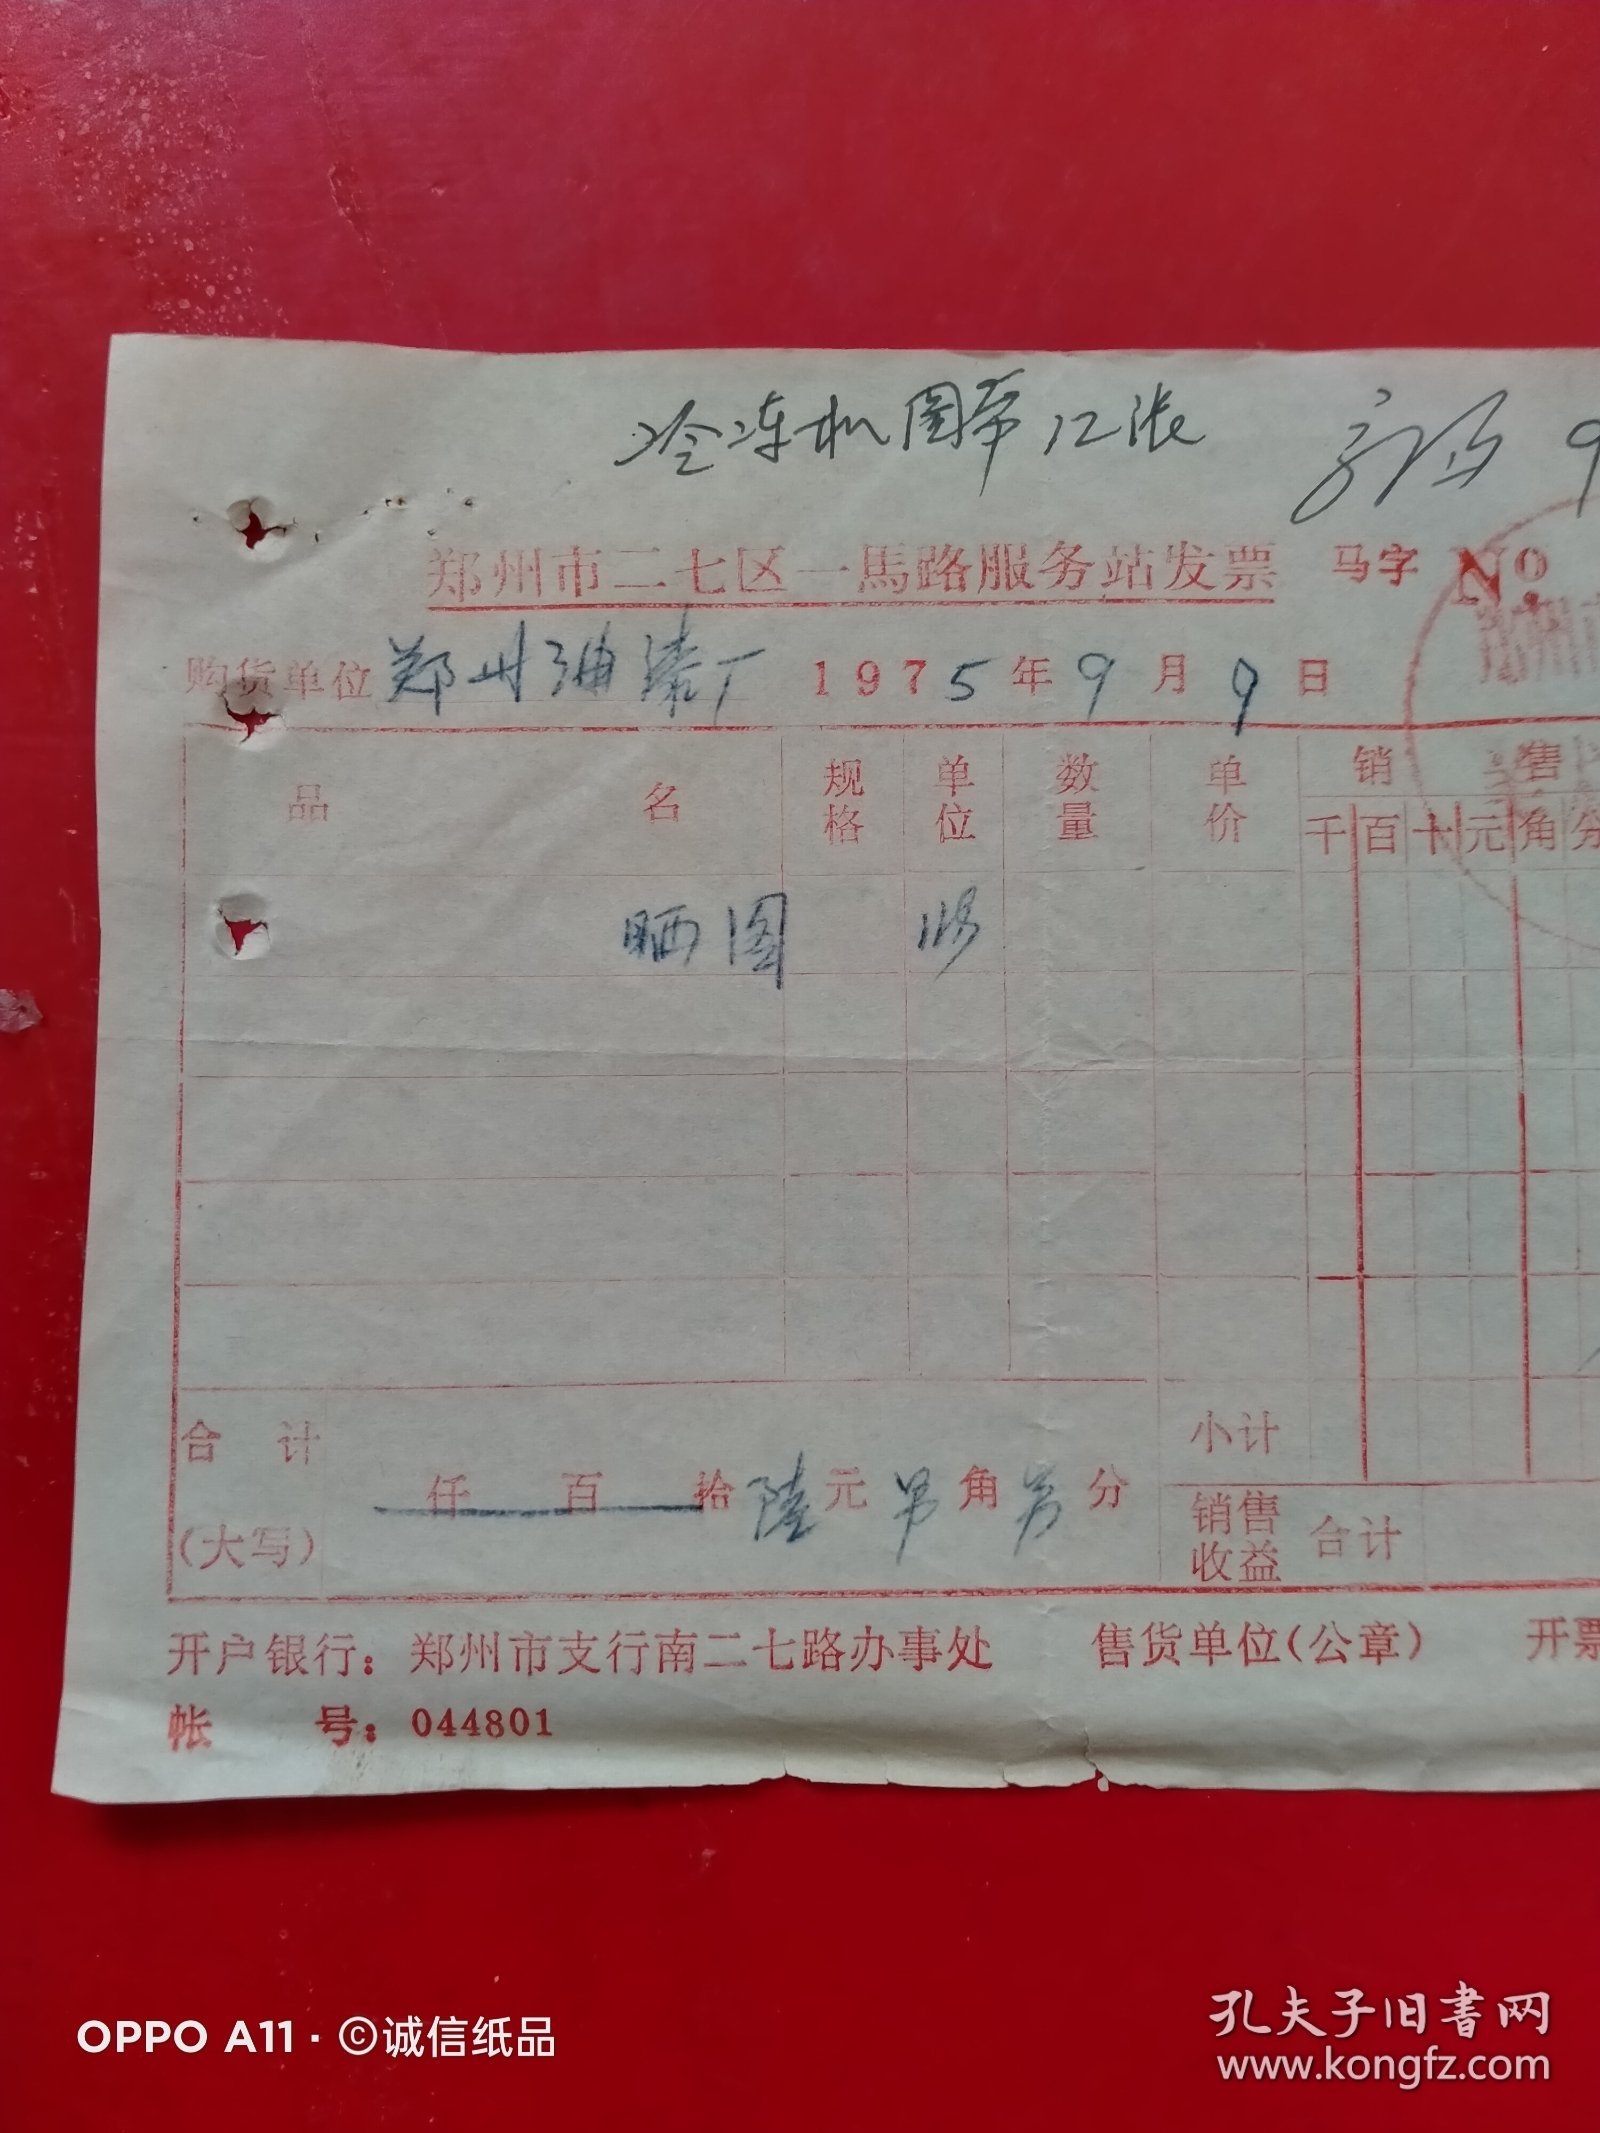 冷冻机图纸12张
郑州市二七区一馬路服务站发票 马字 No.
购货单位 郑州油漆厂 1975年9月9日
品名 规格 单位 数量 单价 销售
千百十元角分
晒图
合计(大写) 仟 百 拾 陆元 另角 另分
小计
销售收益 合计
开户银行：郑州市支行南二七路办事处 售货单位(公章) 开票
帐号：044801
OPPO A11 · ©诚信纸品
孔夫子旧书网
www.kongfz.com